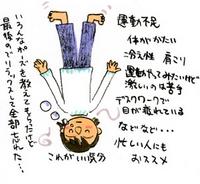 運動不足
体がかたい
冷え性 肩こり
運動やってみたいけど
激しいのは苦手
デスクワークで
目が疲れている
などなど・・・
忙しい人にも
おススメ
いろんなポーズを教えてもらったけど
最後のでリラックスして全部忘れた…
これがいい気分